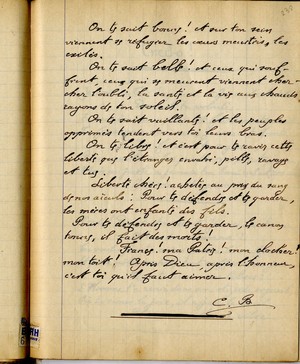 On te sait bonne ! et sur ton sein
viennent se réfugier les cœurs meurtris, les
exilés.
On te sait belle ! et ceux qui souf-
frent, ceux qui se meurent viennent cher-
cher l'oubli, la santé et la vie aux chauds
rayons de ton soleil.
On te sait vaillante ! et les peuples
opprimés tendent vers toi leurs bras.
On te sait libre ! et c'est pour te ravir cette
liberté que l'étranger envahi, pille, ravage
et tue.
Liberté chérie ! achetée au prix du sang
de nos aïeuls ! Pour te défendre et te garder,
les mères ont enfanté des fils.
Pour te défendre et te garder, le canon
tonne, il fait des morts !
France ! ma Patrie ! mon clocher !
mon toit ! Après Dieu, après l'honneur,
c'est toi qu'il faut aimer.
C. B.